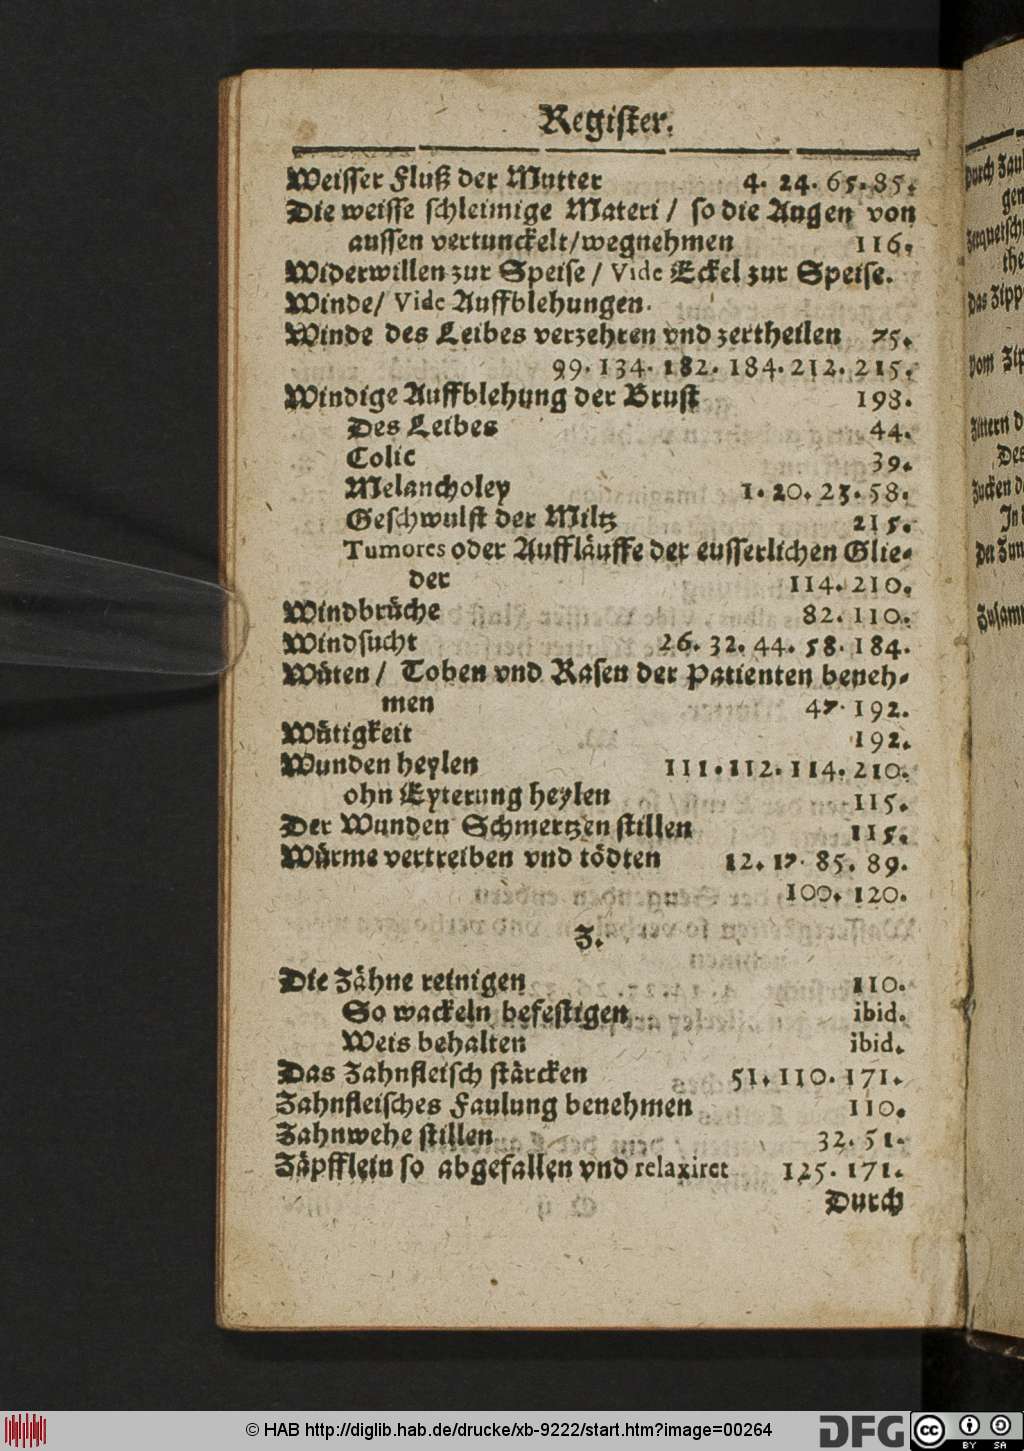 Register.
Weisser Fluß der Mutter 4. 24. 65. 85.
Die weisse schleimige Materi / so die Augen von
aussen vertunckelt/wegnehmen 116.
Widerwillen zur Speise / Vide Eckel zur Speise.
Winde/ Vide Auffblehungen.
Winde des Leibes verzehren vnd zertheilen 75.
99. 134. 182. 184. 212. 215.
Windige Auffblehung der Brust 198.
Des Leibes 44.
Colic 39.
Melancholey 1. 20. 23. 58.
Geschwulst der Miltz 215.
Tumores oder Auffläuffe der eusserlichen Glie-
der 114. 210.
Windbrüche 82. 110.
Windsucht 26. 32. 44. 58. 184.
Wüten / Toben vnd Rasen der Patienten beneh-
men 47. 192.
Wütigkeit 192.
Wunden heylen 111. 112. 114. 210.
ohn Eyterung heylen 115.
Der Wunden Schmertzen stillen 115.
Würme vertreiben vnd tödten 12. 17. 85. 89.
100. 120.
Z.
Die Zähne reinigen 110.
So wackeln befestigen ibid.
Weis behalten ibid.
Das Zahnfleisch stärcken 51. 110. 171.
Zahnfleisches Faulung benehmen 110.
Zahnwehe stillen 32. 51.
Zäpfflein so abgefallen vnd relaxiret 125. 171.
Durch
Durch
gen
the
Das
Vom
Zittern
Des
Zucken
Jn
Der
© HAB http://diglib.hab.de/drucke/xb-9222/start.htm?image=00264
DFG
cc
BY SA